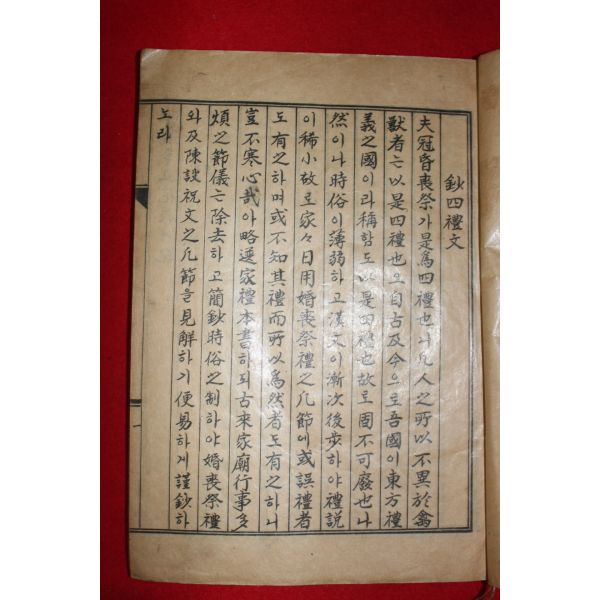 鈔四禮文
夫冠昏喪祭가是爲四禮也니凡人之所以不異於禽
獸者는以是四禮也오自古及今으로吾國이東方禮
義之國이라稱함도以是四禮也故로固不可廢也나
然이나時俗이薄弱하고漢文이漸次後步하야禮說
이稀小故로家々日用婚喪祭禮之凡節에或誤禮者
도有之하며或不知其禮而所以爲然者도有之하니
豈不寒心哉아略選家禮本書하되古來家廟行事多
煩之節儀는除去하고簡鈔時俗之制하야婚喪祭禮
와及陳設祝文之凡節을見解하기便易하게謹鈔하
노라
一